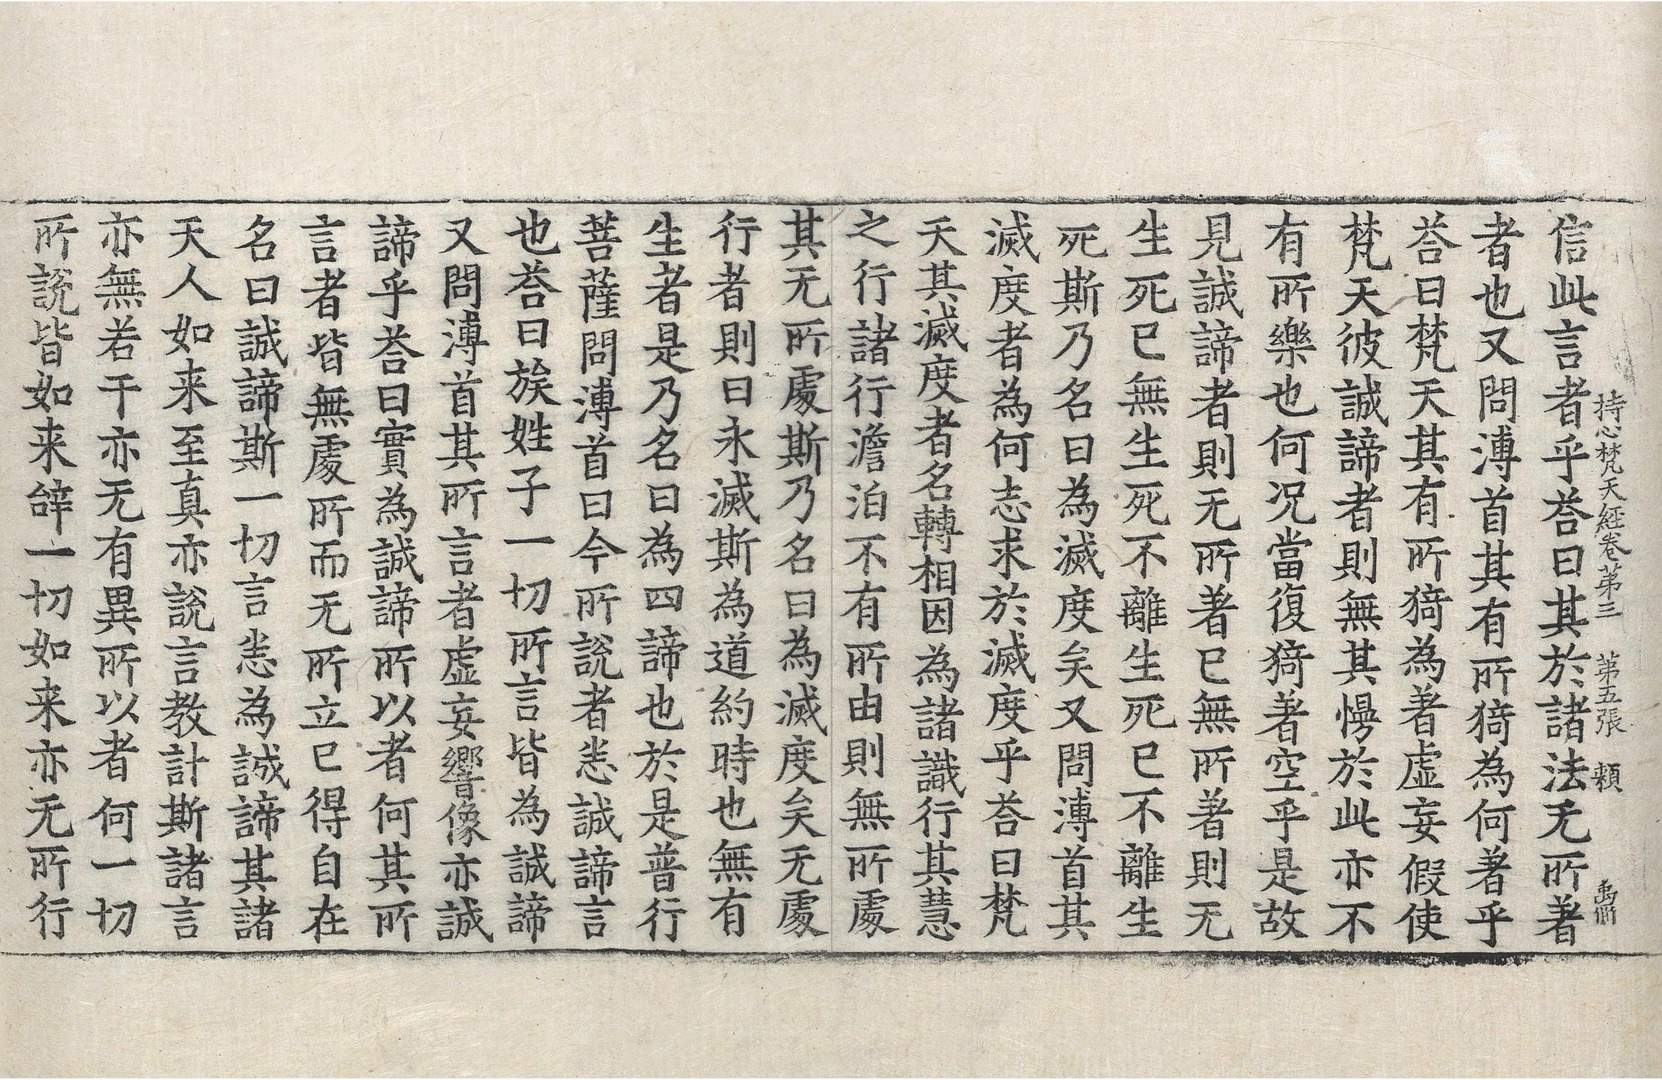 持心梵天經卷第三　第五張　頼
信此言者乎荅曰其於諸法无所著
者也又問溥首其有所猗為何著乎
荅曰梵天其有所猗為著虛妄假使
梵天彼誠諦者則無其慢於此亦不
有所樂也何况當復猗著空乎是故
見誠諦者則无所著已無所著則无
生死已無生死不離生死已不離生
死斯乃名曰為滅度矣又問溥首其
滅度者為何志求於滅度乎荅曰梵
天其滅度者名轉相因為諸識行其慧
之行諸行澹泊不有所由則無所處
其无所處斯乃名曰為滅度矣无處
行者則曰永滅斯為道約時也無有
生者是乃名曰為四諦也於是普行
菩薩問溥首曰今所說者悉誠諦言
也荅曰族姓子一切所言皆為誠諦
又問溥首其所言者虛妄響像亦誠
諦乎荅曰實為誠諦所以者何其所
言者皆無處所而无所立已得自在
名曰誠諦斯一切言悉為誠諦其諸
天人如来至真亦說言教計斯諸言
亦無若干亦无有異所以者何一切
所說皆如来辝一切如来亦无所行